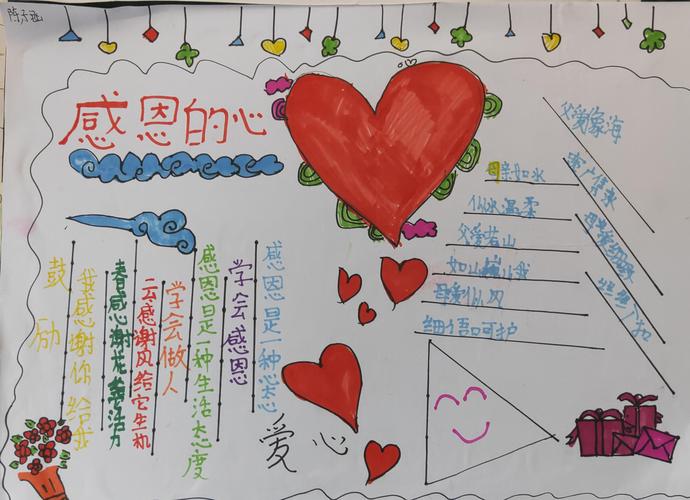 陈子涵
感恩的心
感恩是一种心态
学会感恩
感恩是一种生活态度
学会做人
云感谢风给它生机
春感谢花带活力
我感谢你给我
鼓励
爱心
母亲如水
似水温柔
父爱若山
如山巍巍
母爱似风
细语呵护
父爱象海
丝丝入扣